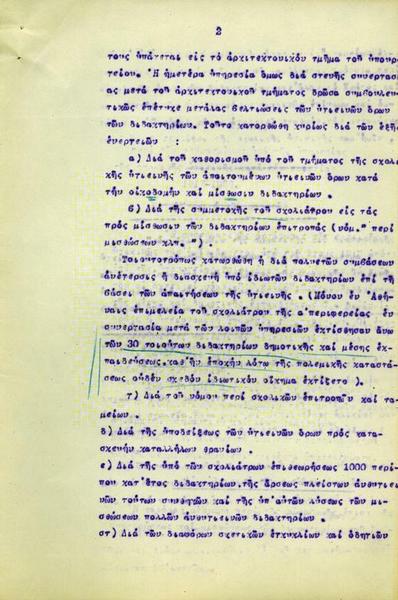 2
τους ὑπάγεται εἰς τό ἀρχιτεκτονικόν τμῆμα τοῦ ὑπουρ
γείου. Ἡ ἡμετέρα ὑπηρεσία ὅμως διά στενῆς συνεργασί
ας μετά τοῦ ἀρχιτεκτονικοῦ τμήματος δρῶσα συμβουλευ
τικῶς ἐπέτυχε μεγάλας βελτιώσεις τῶν ὑγιεινῶν ὅρων
τῶν διδακτηρίων. Τοῦτο κατορθώθη κυρίως διά τῶν ἑξῆς
ἐνεργειῶν :
α) Διά τοῦ καθορισμοῦ ὑπό τοῦ τμήματος τῆς σχολι
κῆς ὑγιεινῆς τῶν ἀπαιτουμένων ὑγιεινῶν ὅρων κατά
τήν οἰκοδομήν καί μίσθωσιν διδακτηρίων .
β) Διά τῆς συμμετοχῆς τοῦ σχολιάτρου εἰς τάς
πρός μίσθωσιν τῶν διδακτηρίων ἐπιτροπάς (νόμ." περί
μισθώσεων κλπ. ").
Τοιουτοτρόπως κατωρθώθη ἡ διά πολυετῶν συμβάσεων
ἀνέγερσις ἤ διασκευή ὑπό ἰδιωτῶν διδακτηρίων ἐπί τῇ
βάσει τῶν ἀπαιτήσεων τῆς ὑγιεινῆς . (Μόνον ἐν Ἀθή
ναις ἐπιμελείᾳ τοῦ σχολιάτρου τῆς α'περιφερείας ἐν
συνεργασίᾳ μετά τῶν λοιπῶν ὑπηρεσιῶν ἐκτίσθησαν ἄνω
τῶν 30 τοιούτων διδακτηρίων δημοτικῆς καί μέσης ἐκ
παιδεύσεως, καθ'ἥν ἐποχήν λόγω τῆς πολεμικῆς καταστά
σεως οὐδέν σχεδόν ἰδιωτικόν οἴκημα ἐκτίζετο ).
γ) Διά τοῦ νόμου περί σχολικῶν ἐπιτροπῶν καί τα
μείων.
δ) Διά τῆς ὑποδείξεως τῶν ὑγιεινῶν ὅρων πρός κατα
σκευήν καταλλήλων θρανίων .
ε) Διά τῆς ὑπό τῶν σχολιάτρων ἐπιθεωρήσεως 1000 περί
που κατ'ἔτος διδακτηρίων, τῆς ἄρσεως πλείστων ἀνθυγιει
νῶν τούτων συνθηκῶν καί τῆς ὑπ'αὐτῶν λύσεως τῶν μι
σθώσεων πολλῶν ἀνθυγιεινῶν διδακτηρίων .
στ) Διά τῶν διαφόρων σχετικῶν ἐγκυκλίων καί ὁδηγιῶν